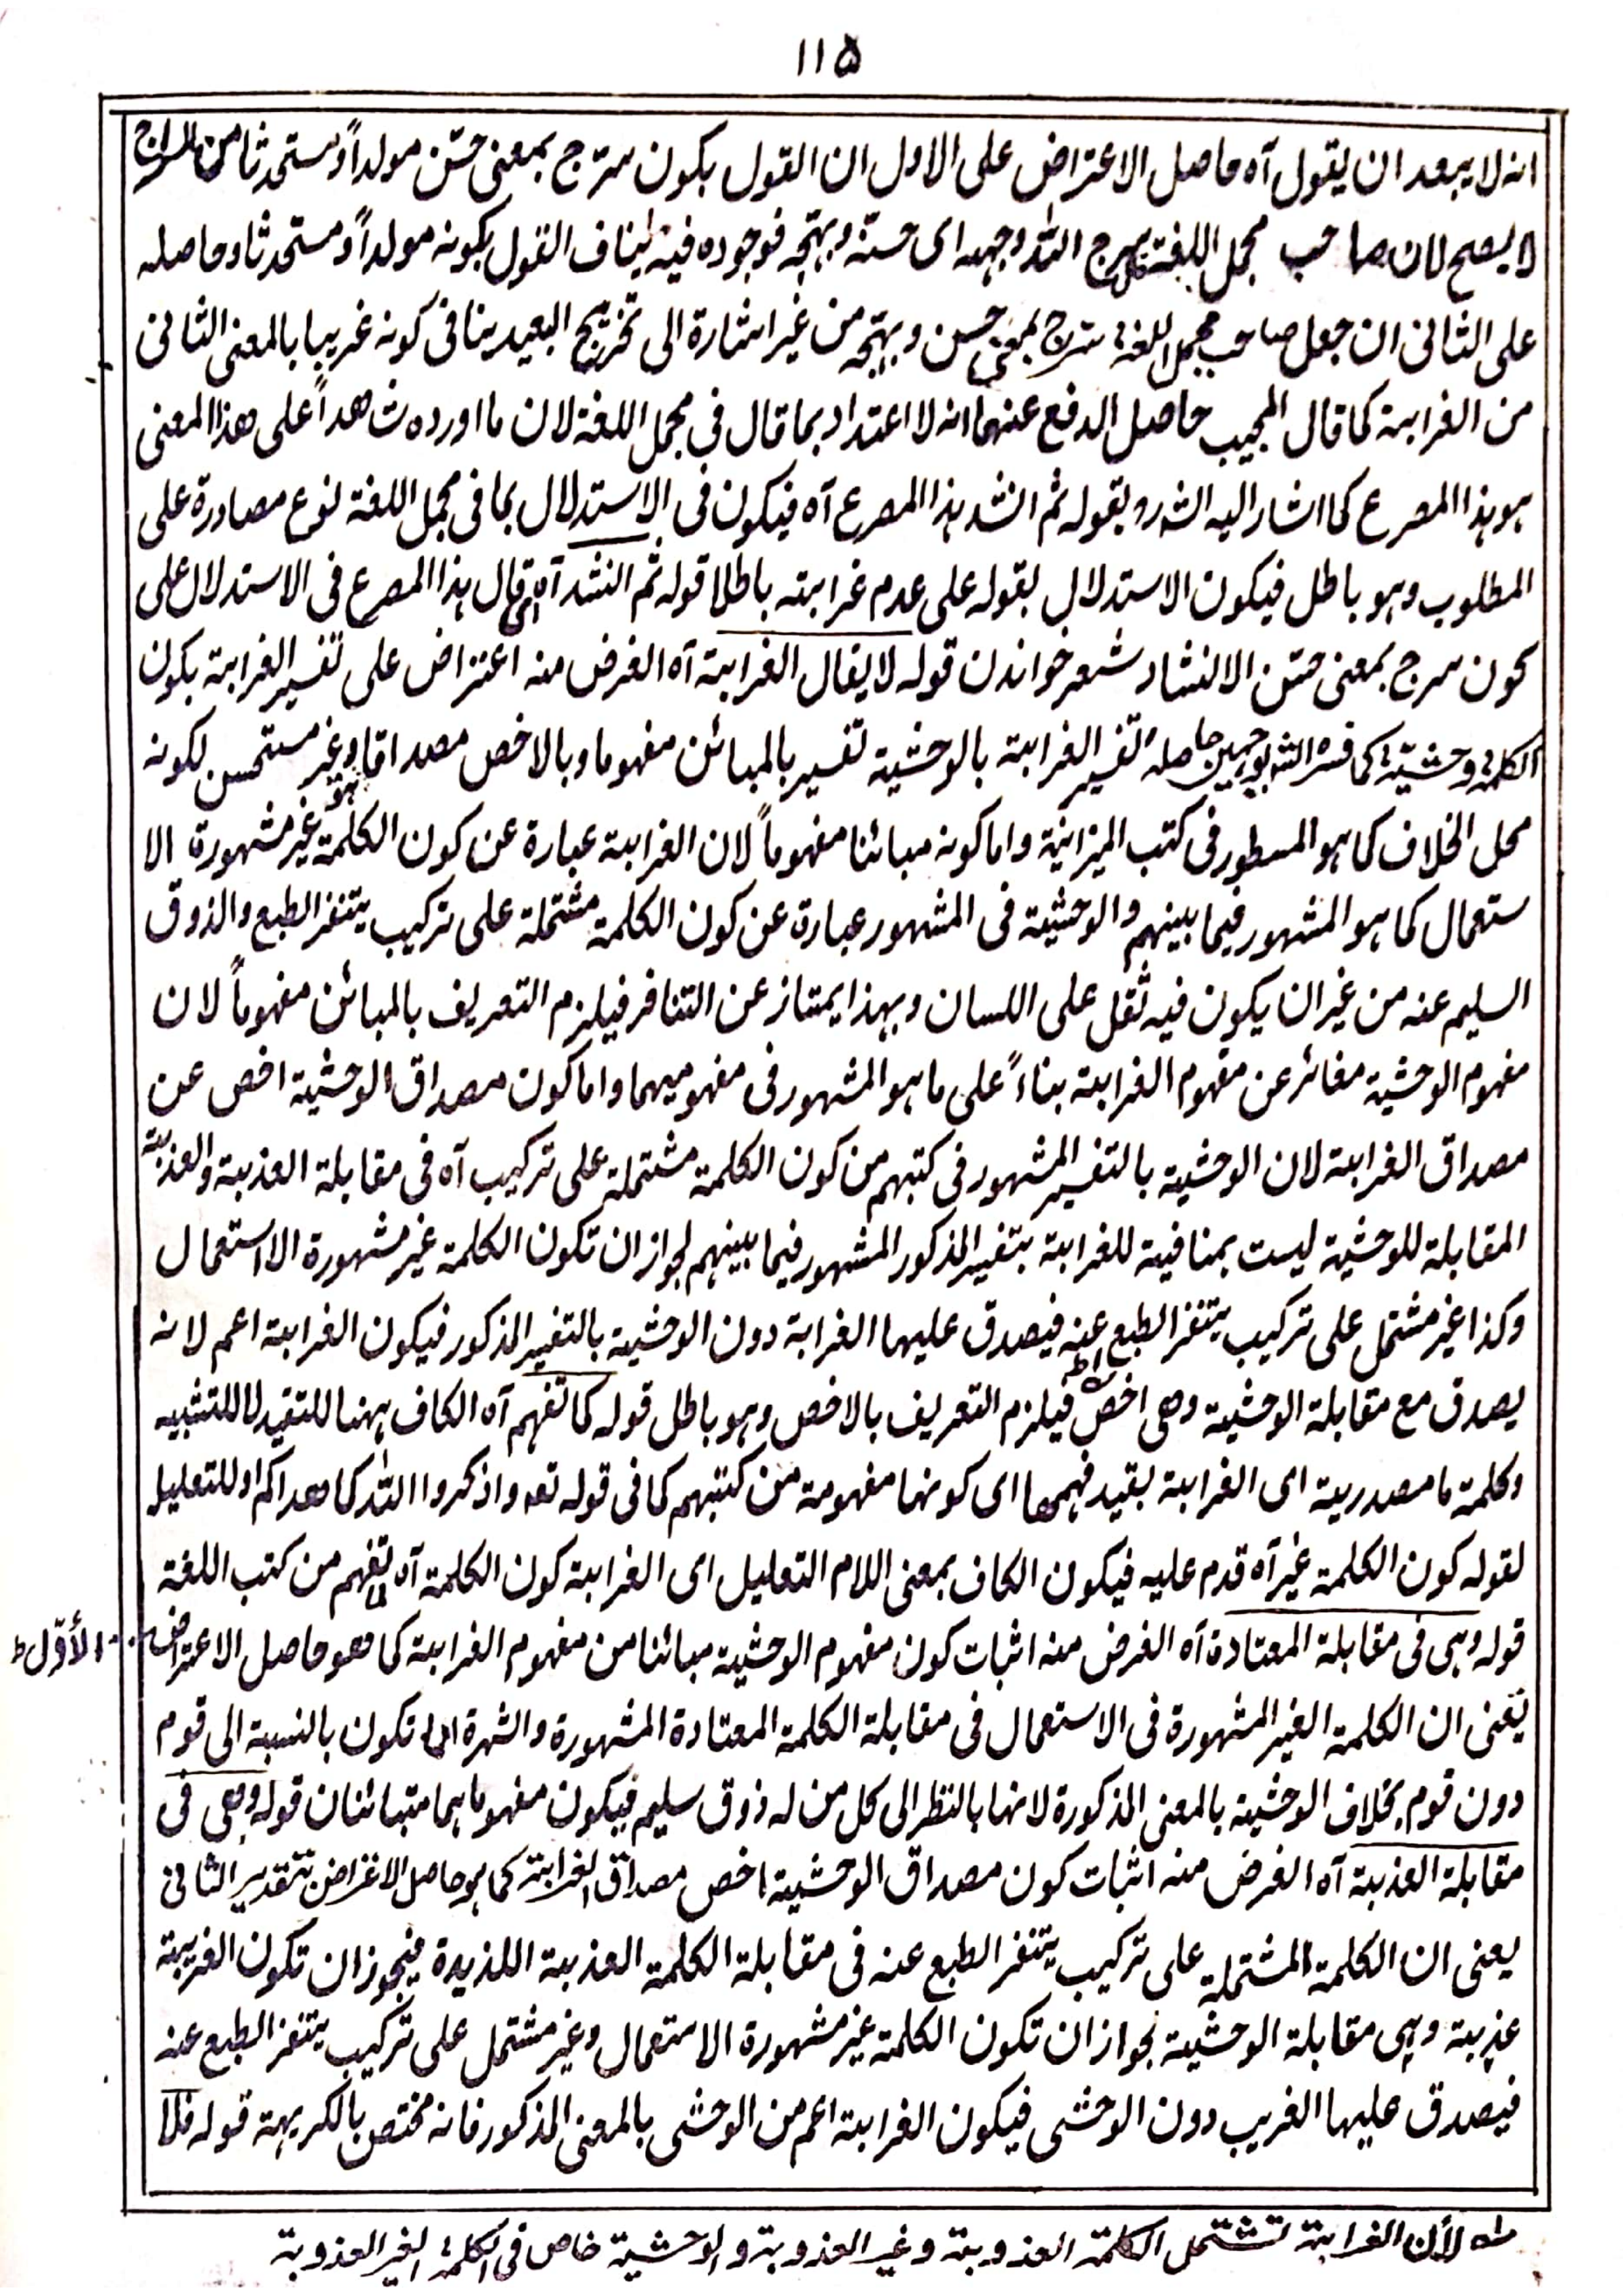 ١١٥
انه لا يبعد ان يقول آه حاصل الاعتراض على الاول ان القول بكون سرّج بمعنى حسّن مولداً ومستحدثا من السراج
لا يصح لان صاحب مجمل اللغة سرج الله وجهه اى حسنه وبهّجه فوجوده فيه ينافى القول بكونه مولداً ومستحدثا وحاصله
على الثانى ان جعل صاحب مجمل اللغة سرّج بمعنى حسن وبهّجه من غير اشارة الى تخريج البعيد ينافى كونه غريبا بالمعنى الثانى
من الغرابة كما قال المجيب حاصل الدفع عنهما انه لا اعتداد بما قال فى مجمل اللغة لان ما اورده شاهداً على هذا المعنى
هو هذا المصرع كما اشار اليه الشرو بقوله ثم انشد هذا المصرع آه فيكون فى الاستدلال بما فى مجمل اللغة نوع مصادرة على
المطلوب وهو باطل فيكون الاستدلال بقوله على عدم غرابته باطلا قوله ثم انشد آه اى قال هذا المصرع فى الاستدلال على
كون سرج بمعنى حسّن الانشاد شعر خواندن قوله لا يقال الغرابة آه الغرض منه اعتراض على تفسير الغرابة بكون
الكلمة وحشية كما فسره الشر بوجهين حاصله تفسير الغرابة بالوحشية تفسير بالمبائن مفهوما وبالاخص مصداقا وهو غير مستحسن لكونه
محل الخلاف كما هو المسطور فى كتب الميزانية واما كونه مبائنا مفهوماً لان الغرابة عبارة عن كون الكلمة غير مشهورة الا
ستعمال كما هو المشهور فيما بينهم والوحشية فى المشهور عبارة عن كون الكلمة مشتملة على تركيب يتنفر الطبع والذوق
السليم عنه من غير ان يكون فيه ثقل على اللسان وبهذا يمتاز عن التنافر فيلزم التعريف بالمبائن مفهوماً لان
مفهوم الوحشية مغائر عن مفهوم الغرابة بناءً على ما هو المشهور فى مفهوميهما واما كون مصداق الوحشية اخص عن
مصداق الغرابة لان الوحشية بالتفسير المشهور فى كتبهم من كون الكلمة مشتملة على تركيب آه فى مقابلة العذبة والعذبة
المقابلة للوحشية ليست بمنافية للغرابة بتفسير المذكور المشهور فيما بينهم لجواز ان تكون الكلمة غير مشهورة الاستعمال
وكذا غير مشتمل على تركيب يتنفر الطبع عنه فيصدق عليها الغرابة دون الوحشية بالتفسير المذكور فيكون الغرابة اعم لانه
يصدق مع مقابلة الوحشية وهى اخص فيلزم التعريف بالاخص وهو باطل قوله كما تفهم آه الكاف ههنا للتقيد لا للتشبيه
وكلمة ما مصدرية اى الغرابة بقيد فهمها اى كونها مفهومة من كتبهم كما فى قوله تعه واذكروا الله كما هداكم او للتعليل
لقوله كون الكلمة غير آه قدم عليه فيكون الكاف بمعنى اللام التعليل اى الغرابة كون الكلمة آه لما تفهم من كتب اللغة
قوله وهى فى مقابلة المعتادة آه الغرض منه اثبات كون مفهوم الوحشية مبائنا من مفهوم الغرابة كما هو حاصل الاعتراض الأوّل
يعنى ان الكلمة الغير المشهورة فى الاستعمال فى مقابلة الكلمة المعتادة المشهورة والشهرة انما تكون بالنسبة الى قوم
دون قوم بخلاف الوحشية بالمعنى المذكورة لانها بالنظر الى كل من له ذوق سليم فيكون مفهوما هما متبائنان قوله وهى فى
مقابلة العذبة آه الغرض منه اثبات كون مصداق الوحشية اخص مصداق الغرابة كما هو حاصل الاغراض بتقدير الثانى
يعنى ان الكلمة المشتملة على تركيب يتنفر الطبع عنه فى مقابلة الكلمة العذبة اللذيدة فيجوز ان تكون الغريبة
عذبة وهى مقابلة الوحشية لجواز ان تكون الكلمة غير مشهورة الاستعمال وغير مشتمل على تركيب يتنفر الطبع عنه
فيصدق عليها الغريب دون الوحشى فيكون الغرابة اعم من الوحشى بالمعنى المذكور فانه مختص بالكريهة قوله فلا
لأن الغرابة تشتمل الكلمة العذوبة وغير العذوبة والوحشية خاص فى الكلمة الغير العذوبة